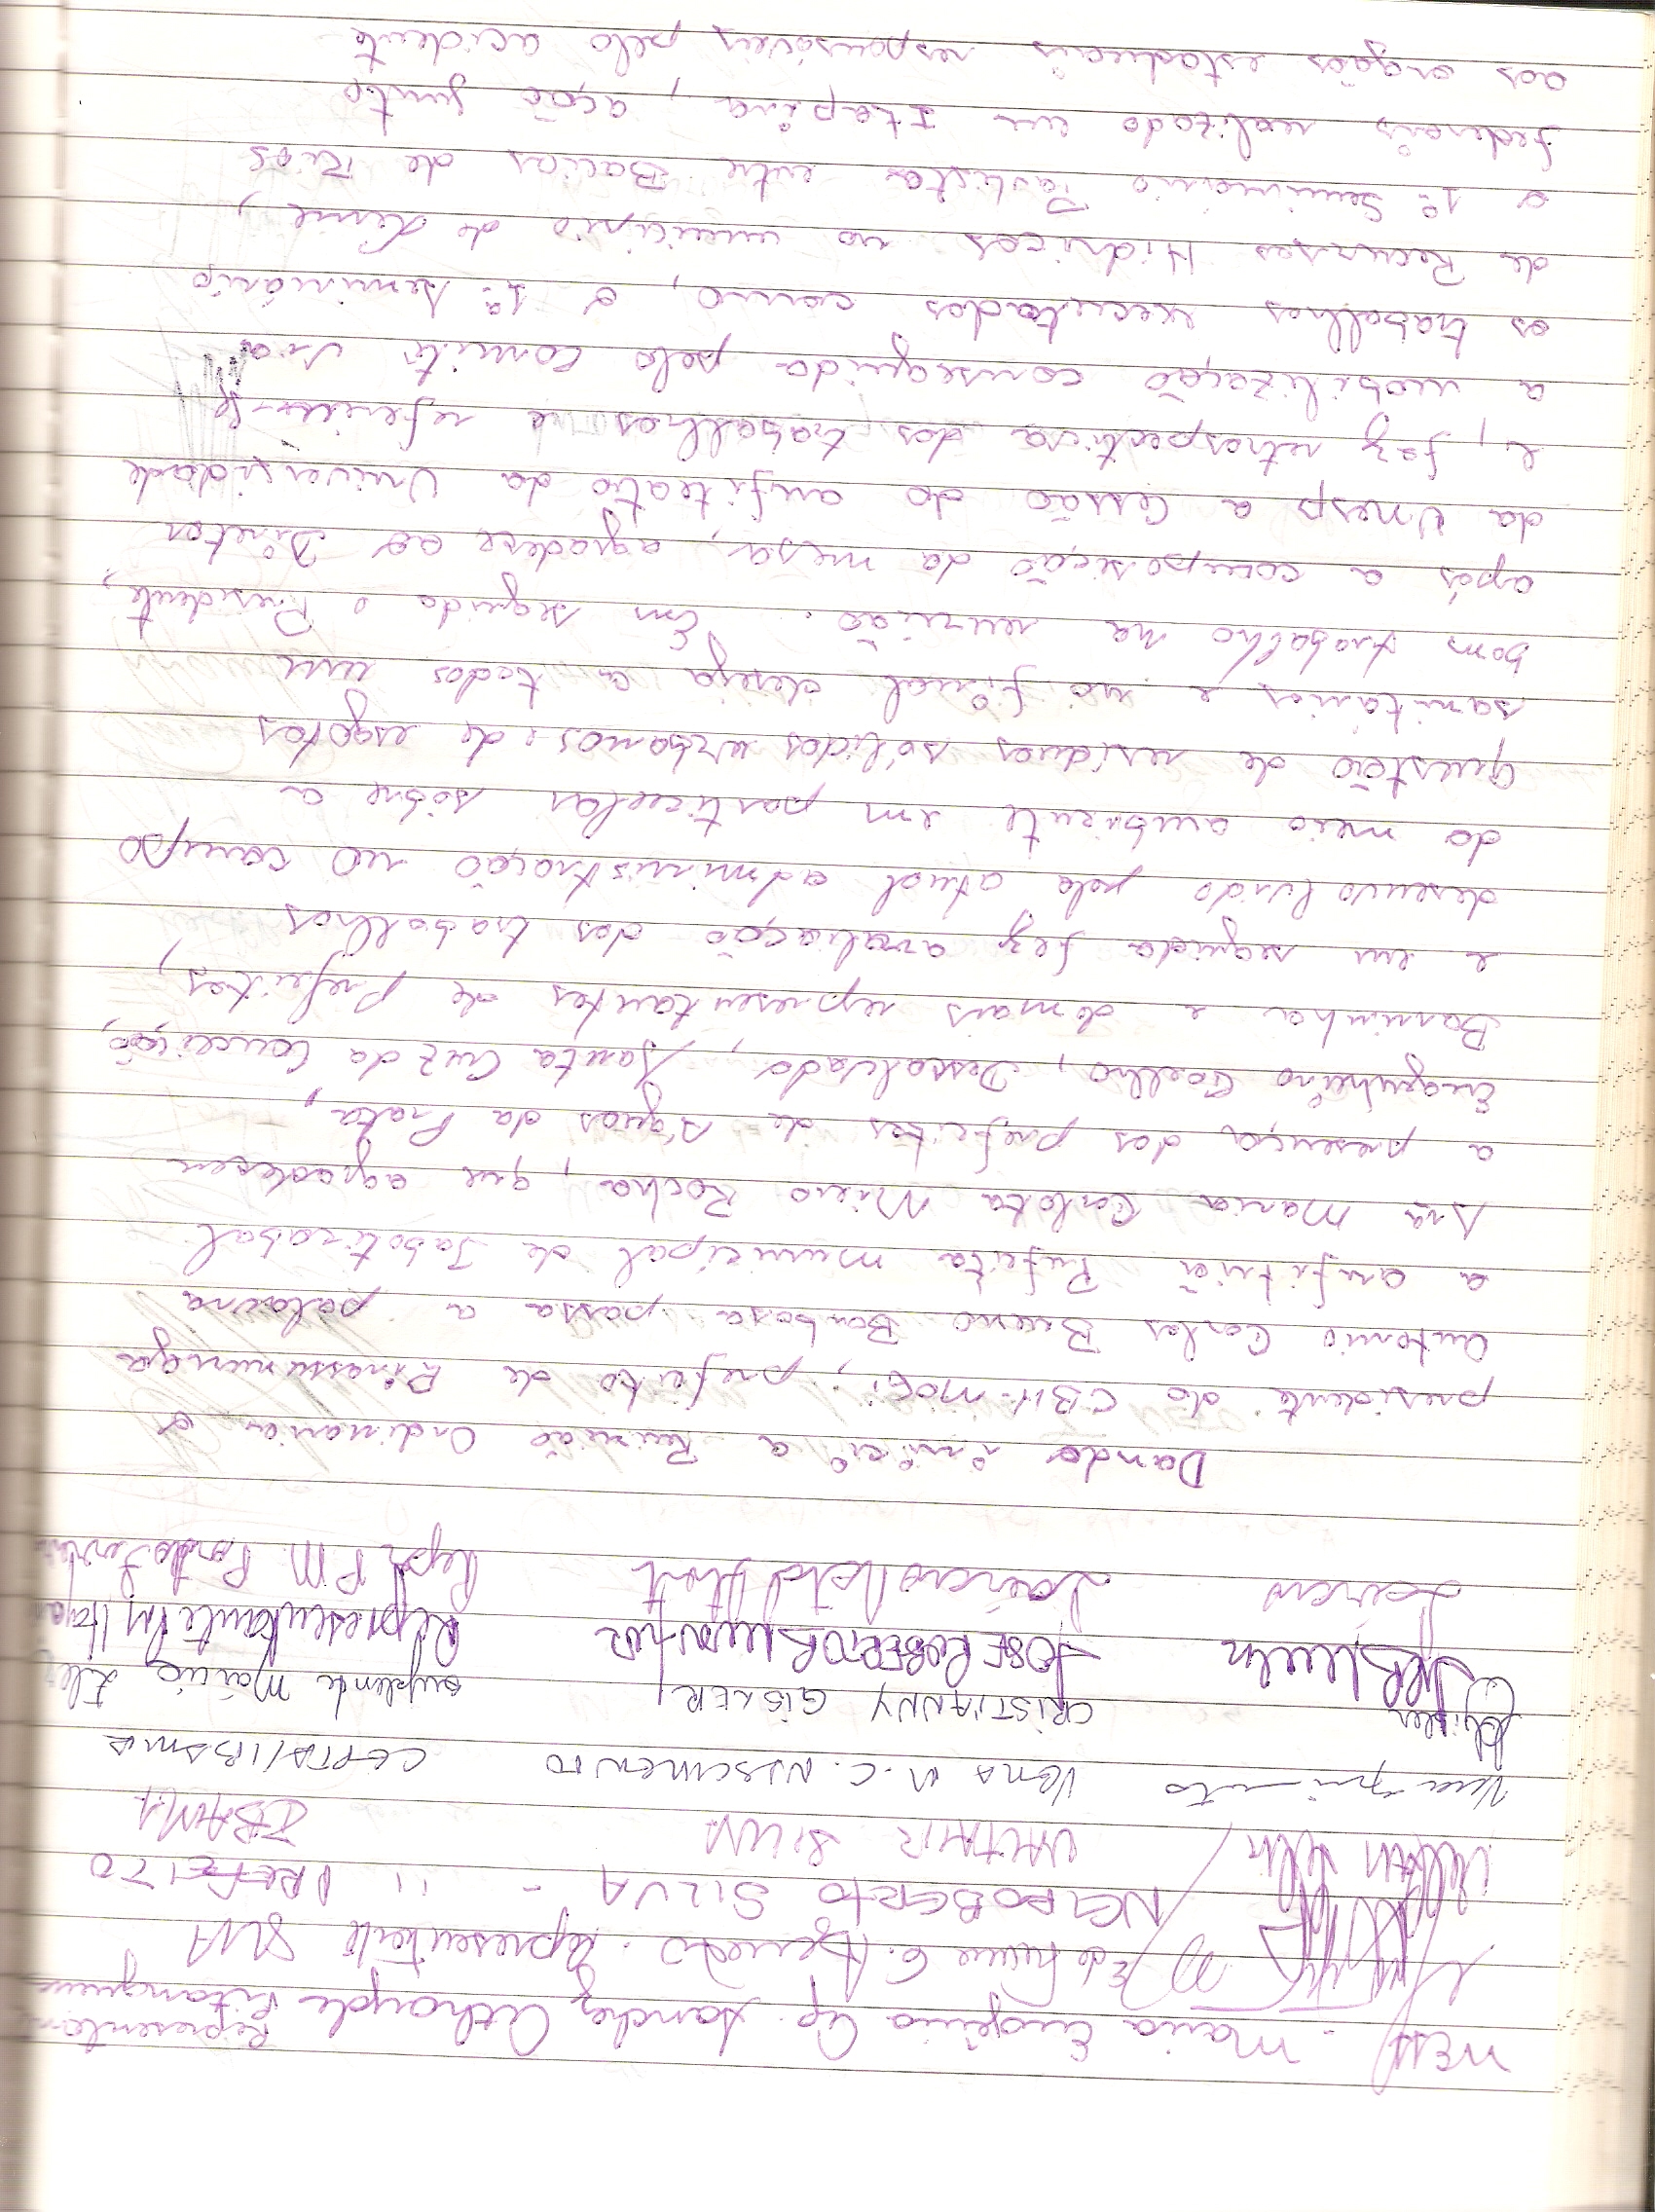 MEA - Maria Eugênia Ap. Sanchez Athayde Representan Pitangueiras
Edelaine C. Representante SMA
NEI ROBERTO SILVA - " PREFEITO
VALTAIR SILVA IBAMA
VERA M. C. NASCIMENTO CEPTA/IBAMA
CRISTIANNY GISLER, suplente Márcio
JOSÉ ROBERTO Representante PM
Laércio Laércio Repr PM
Dando início a Reunião Ordinária o
presidente do CBH-MOGI, prefeito de Pirassununga
Antonio Carlos Bueno Barbosa passa a palavra
a anfitriã Prefeita municipal de Jaboticabal
Sra Maria Carlota Niero Rocha, que agradesen
a presença dos prefeitos de Águas da Prata,
Engenheiro Coelho, Descalvado, Santa Cruz da Conceição,
Barrinha e demais representantes de Prefeitos,
e em seguida fez avaliação dos trabalhos
desenvolvido pela atual administração no campo
do meio ambiente em particular sôbre a
questão de resíduos sólidos urbanos e de esgotos
sanitários e no final deseja a todos um
bom trabalho na reunião. Em seguida o Presidente,
após a composição da mesa, agradece ao Diretor
da Unesp a cessão do anfiteatro da Universidade
e, fez retrospectiva dos trabalhos e referiu-se
a mobilização conseguida pelo comitê
os trabalhos executados como, o 1º Seminário
de Recursos Hídricos no município de Leme,
o 1º Seminário Paulista entre Bacias de Rios
federais realizado em Itapira, ação junto
aos orgãos estaduais responsáveis pelo acidente